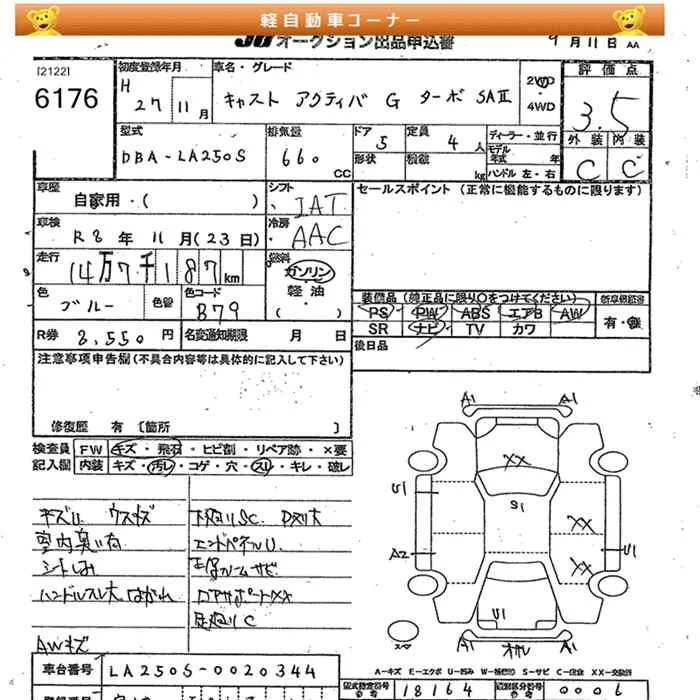 軽自動車コーナー
JU オークション出品申込書 9月11日 AA
[2122]
6176
初度登録年月
H 27 11月
車名・グレード
キャスト アクティバ G ターボ SAⅡ
2WD
4WD
評価点
3.5
外装 内装
C C
型式
DBA-LA250S
排気量
660 CC
ドア
5
形状
定員
4人
積載
kg
ディーラー・並行
モデル年式 年
ハンドル 左・右
車歴
自家用・( )
シフト
IAT
冷房
AAC
セールスポイント (正常に機能するものに限ります)
車検
R8年 11月(23日)
走行
14万7千187km
燃料
ガソリン
軽油
( ・ )
色
ブルー
色替
色コード
B79
装備品 (純正品に限り○をつけてください)
PS PW ABS エアB AW
SR ナビ TV カワ
新車保証書
有・無
R券 8,550円
名変通知期限 月 日
後日品
注意事項申告欄(不具合内容等は具体的に記入して下さい)
修復歴 有 〔箇所 〕
検査員記入欄
FW キズ・飛石・ヒビ割・リペア跡・×要
内装 キズ・汚レ・コゲ・穴・スレ・キレ・破レ
キズU ウスキズ
室内臭い有
シートしみ
ハンドルスレ大 はがれ
AWキズ
下廻りSC
エンドパネルU
A1 A1
XX
S1
U1
XX
A2
XX
U1
U1
A1 A1
スペ
車台番号 LA250S-0020344
A-キズ E-エクボ U-凹み W-補修 S-サビ C-腐食 XX-交換済
型式指定番号 参考 18164
類別区分番号 参考